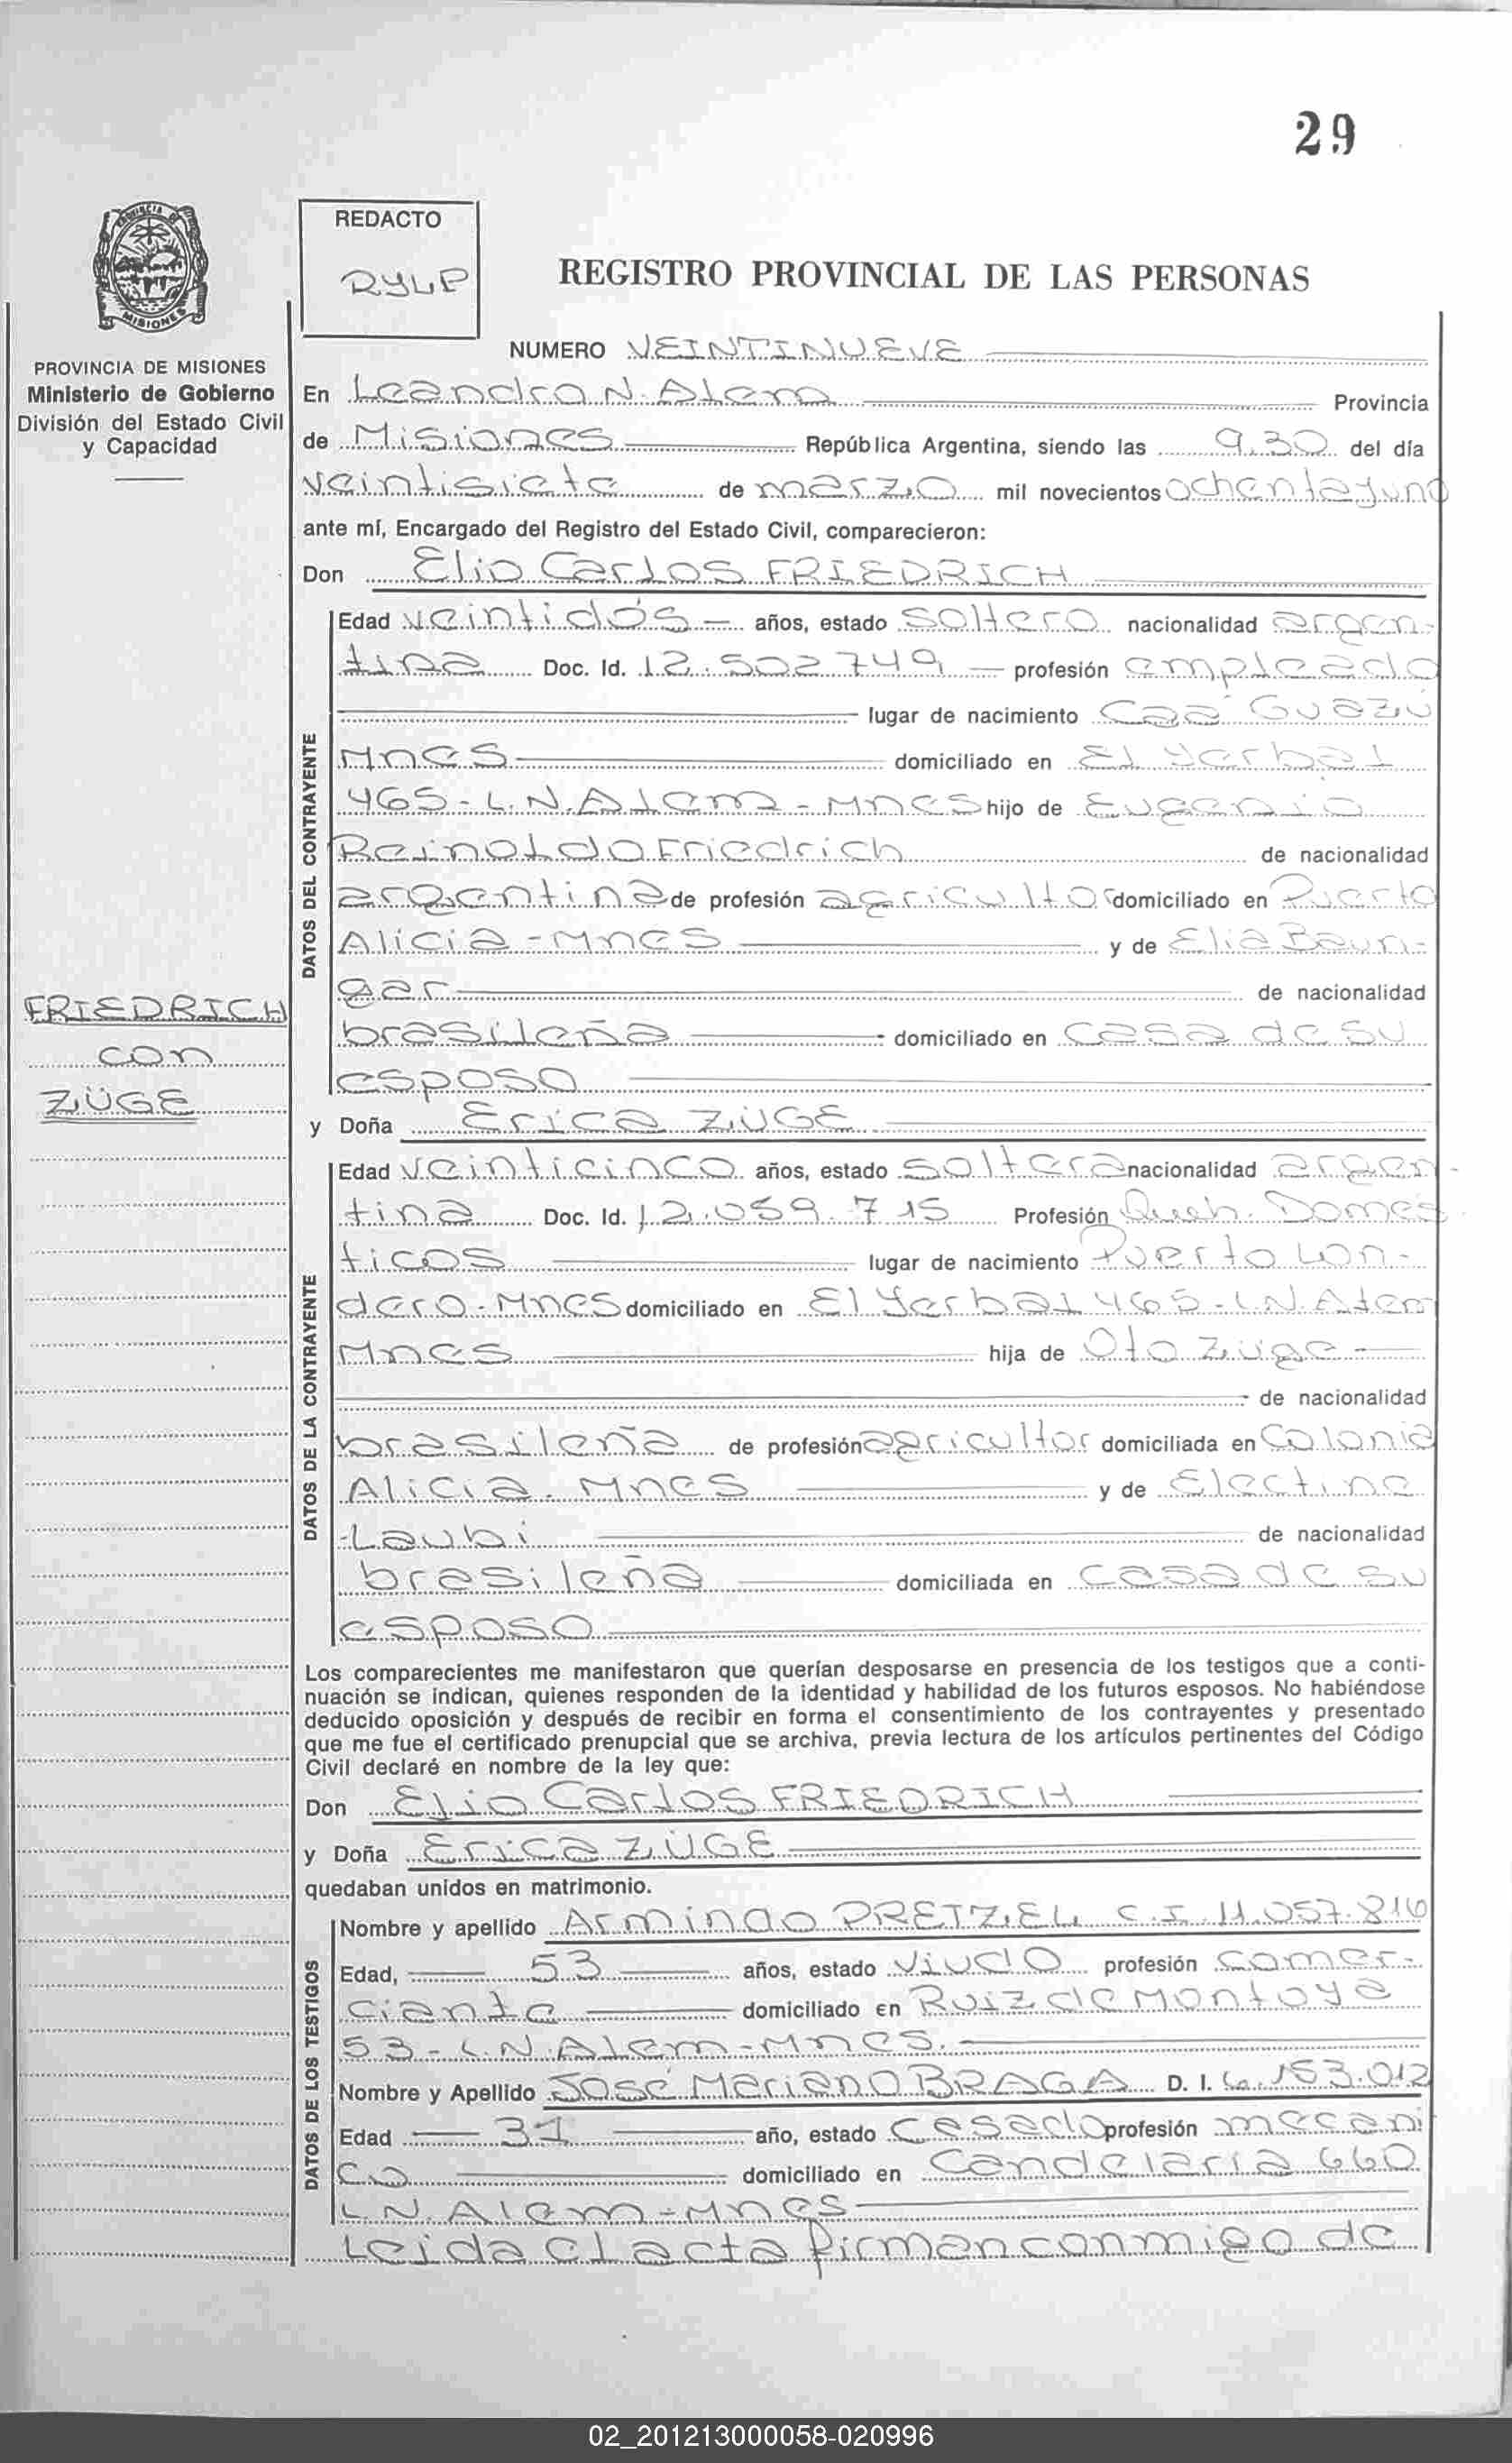 29
REDACTO
RYLP
REGISTRO PROVINCIAL DE LAS PERSONAS
MISIONES
PROVINCIA DE MISIONES
Ministerio de Gobierno
División del Estado Civil
y Capacidad
NUMERO VEINTINUEVE
En Leandro N. Alem Provincia
de Misiones República Argentina, siendo las 9,30 del día
veintisiete de marzo mil novecientos ochentayuno
ante mí, Encargado del Registro del Estado Civil, comparecieron:
Don Elio Carlos FRIEDRICH
DATOS DEL CONTRAYENTE
Edad veintidós - años, estado soltero nacionalidad argen-
tina Doc. Id. 12.502.749 - profesión empleado
lugar de nacimiento Caá Guazú
Mnes domiciliado en El Yerbal
465 - L.N.Alem - Mnes hijo de Eugenio
Reinoldo Friedrich de nacionalidad
argentina de profesión agricultor domiciliado en Puerto
Alicia - Mnes y de Elia Baun-
gar de nacionalidad
brasileña domiciliado en casa de su
esposo
FRIEDRICH
con
ZÜGE
y Doña Erica ZÜGE
DATOS DE LA CONTRAYENTE
Edad veinticinco años, estado soltera nacionalidad argen-
tina Doc. Id. 12.059.715 Profesión Queh. Domés
ticos lugar de nacimiento Puerto Lon-
dero - Mnes domiciliado en El Yerbal 465 - L.N.Alem
Mnes hija de Oto Züge
de nacionalidad
brasileña de profesión agricultor domiciliada en Colonia
Alicia. Mnes y de Electine
Laubi de nacionalidad
brasileña domiciliada en casa de su
esposo
Los comparecientes me manifestaron que querían desposarse en presencia de los testigos que a conti-
nuación se indican, quienes responden de la identidad y habilidad de los futuros esposos. No habiéndose
deducido oposición y después de recibir en forma el consentimiento de los contrayentes y presentado
que me fue el certificado prenupcial que se archiva, previa lectura de los artículos pertinentes del Código
Civil declaré en nombre de la ley que:
Don Elio Carlos FRIEDRICH
y Doña Erica ZÜGE
quedaban unidos en matrimonio.
DATOS DE LOS TESTIGOS
Nombre y apellido Armindo PRETZEL C.I. 11.057.816
Edad, 53 años, estado viudo profesión comer-
ciante domiciliado en Ruiz de Montoya
53 - L.N.Alem - Mnes.
Nombre y Apellido José Mariano BRAGA D. I. 6.153.012
Edad 31 año, estado casado profesión mecáni
co domiciliado en Candelaria 660
L.N.Alem - Mnes
Leida el acta firman conmigo de
02_201213000058-020996